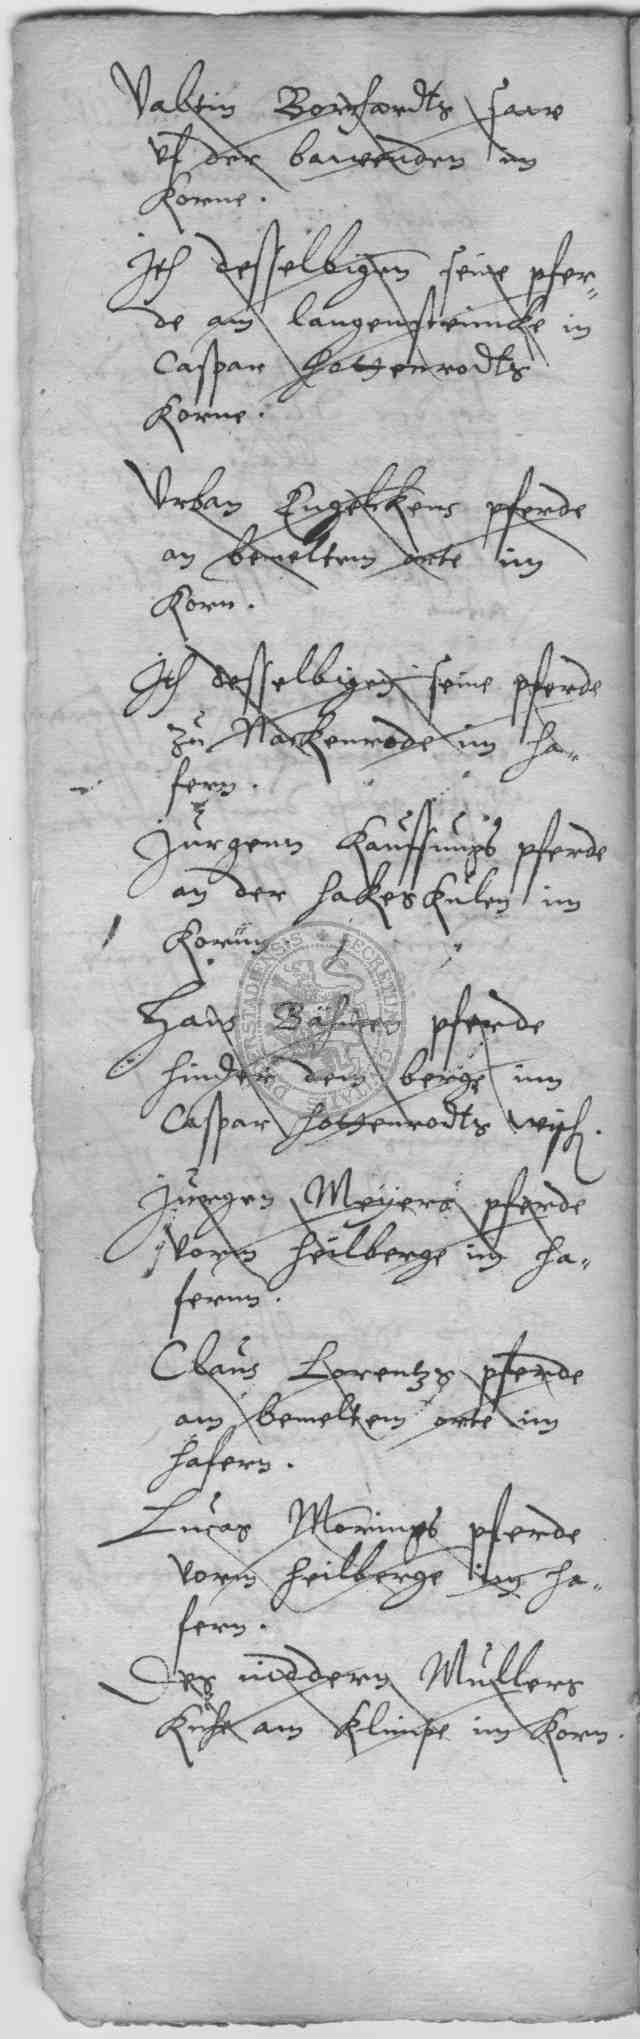 Valtin Borchardts saw
vf der bawenden im
Korne.
Jtem desselbigen seine pfer-
de am langensteincke in
Caspar Hottenrodts
Korne.
Vrban Engelckens pferde
an bemeltem orte im
Korn.
Jtem desselbigen seine pferde
zu Nackenrode im ha-
fern.
Jurgenn Kauffungs pferde
an der hakeskulen im
Kornn.
Hans pferde
hinder dem berge inn
Caspar Hottenrodts wisch.
Jurgen Meyers pferde
vorm heilberge im ha-
fernn.
Claus Lorentzs pferde
am bemeltem orte im
hafern.
Lucas Morings pferde
vorm heilberge im ha-
fern.
Des niddern Mullers
Kuhe am Klimpe im Korn.